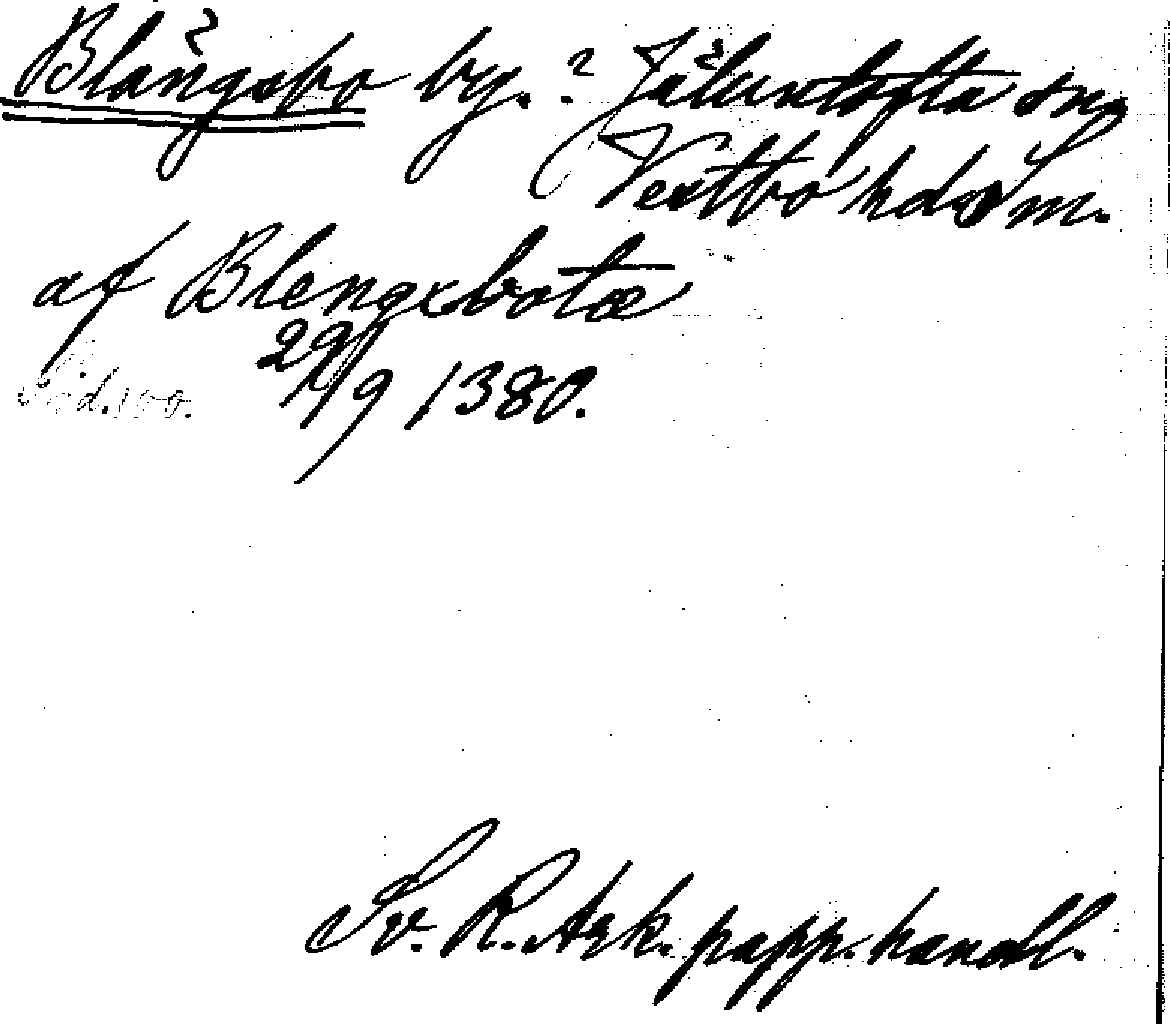 Blångsbo by. ? Jälluntofta sn.
Vestbo hd. Sm.
af Blengxbotæ
29/9 1380.
Sid. 100.
Sv. R. Ark. papp. handl.